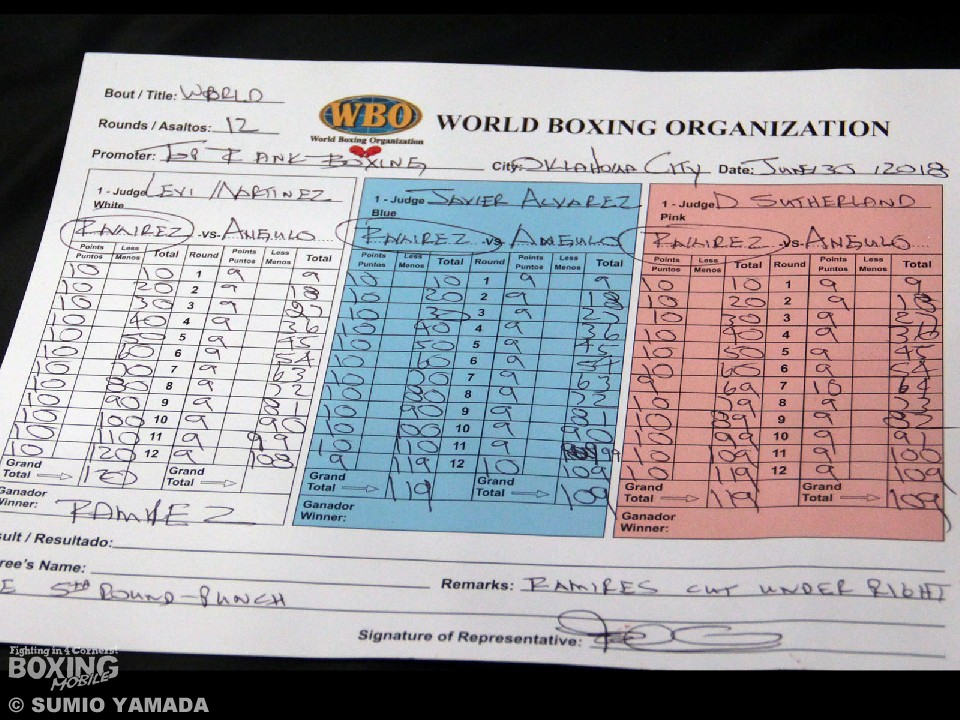 Bout / Title: WORLD
WBO
World Boxing Organization
WORLD BOXING ORGANIZATION
Rounds / Asaltos: 12
Promoter: TOP RANK BOXING City: OKLAHOMA CITY Date: JUNE 30, 2018
1 - Judge LEVI MARTINEZ 1 - Judge JAVIER ALVAREZ 1 - Judge D SUTHERLAND
White Blue Pink
RAMIREZ -vs- ANGULO RAMIREZ -vs- ANGULO RAMIREZ -vs- ANGULO
Points Puntos Less Menos Total Round Points Puntos Less Menos Total Points Puntos Less Menos Total Round Points Puntos Less Menos Total Points Puntos Less Menos Total Round Points Puntos Less Menos Total
10 10 1 9 9 10 10 1 9 9 10 10 1 9 9
10 20 2 9 18 10 20 2 9 18 10 20 2 9 18
10 30 3 9 27 10 30 3 9 27 10 30 3 9 27
10 40 4 9 36 10 40 4 9 36 10 40 4 9 36
10 50 5 9 45 10 50 5 9 45 10 50 5 9 45
10 60 6 9 54 10 60 6 9 54 10 60 6 9 54
10 70 7 9 63 10 70 7 9 63 9 69 7 10 64
10 80 8 9 72 10 80 8 9 72 10 79 8 9 73
10 90 9 9 81 10 90 9 9 81 10 89 9 9 82
10 100 10 9 90 10 100 10 9 90 10 99 10 9 91
10 110 11 9 99 10 110 11 9 99 10 109 11 9 100
10 120 12 9 108 9 119 12 10 109 10 119 12 9 109
Grand Total 120 Grand Total Grand Total 119 Grand Total 109 Grand Total 119 Grand Total 109
Ganador Winner: RAMIREZ Ganador Winner: Ganador Winner:
sult / Resultado:
ree's Name:
E 5TH ROUND-PUNCH Remarks: RAMIRES CUT UNDER RIGHT
Signature of Representative:
Fighting in 4 Corners!
BOXING
MOBILE
© SUMIO YAMADA